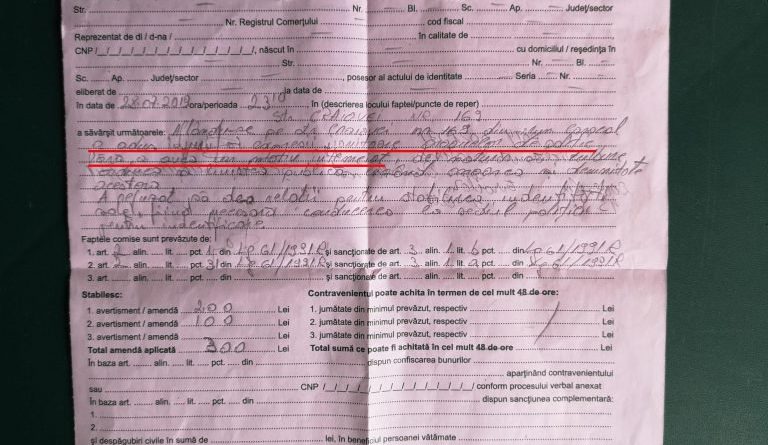 Str. Nr. Bl. Sc. Ap. Județ/sector
Nr. Registrul Comerțului cod fiscal
Reprezentat de dl / d-na / în calitate de
CNP /_/_/_/_/_/_/_/_/_/_/_/_/_/, născut în cu domiciliul / reședința în
Str. Nr. Bl.
Sc. Ap. Județ/sector , posesor al actului de identitate Seria Nr.
eliberat de la data de
în data de 28.07.2019 ora/perioada 23¹⁰ , în (descrierea locului faptei/puncte de reper)
Str. CRAIOVEI NR. 169
a săvârșit următoarele: pe str. Craiovei nr. 169, din
a adus
fără a avea un motiv întemeiat, de natură
acestora
A refuzat să dea relații pentru stabilirea identității
fiind necesară conducerea la sediul poliției
pentru identificare
Faptele comise sunt prevăzute de:
1. art. 2 alin. lit. pct. 1 din Lg 61/1991R și sancționate de art. 3 alin. 1 lit. b pct. din Lg 61/1991R
2. art. 2 alin. lit. pct. 31 din Lg 61/1991R și sancționate de art. 3 alin. 1 lit. a pct. din Lg 61/1991R
3. art. alin. lit. pct. din și sancționate de art. alin. lit. pct. din
Stabilesc: Contravenientul poate achita în termen de cel mult 48 de ore:
1. avertisment / amendă 200 Lei 1. jumătate din minimul prevăzut, respectiv Lei
2. avertisment / amendă 100 Lei 2. jumătate din minimul prevăzut, respectiv Lei
3. avertisment / amendă Lei 3. jumătate din minimul prevăzut, respectiv Lei
Total amendă aplicată 300 Lei Total sumă ce poate fi achitată în cel mult 48 de ore Lei
În baza art. alin. lit. pct. din dispun confiscarea bunurilor
aparținând contravenientului
sau CNP /_/_/_/_/_/_/_/_/_/_/_/_/_/ conform procesului verbal anexat
În baza art. alin. lit. pct. din dispun sancțiunea complementară:
1.
2.
și despăgubiri civile în sumă de lei, în beneficiul persoanei vătămate